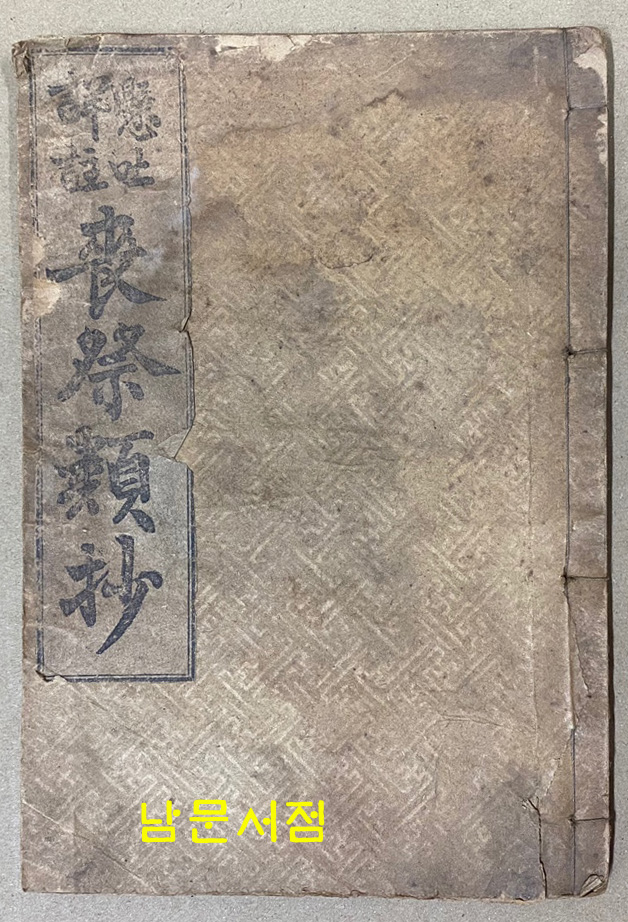 懸吐
詳註
喪祭類抄
남문서점